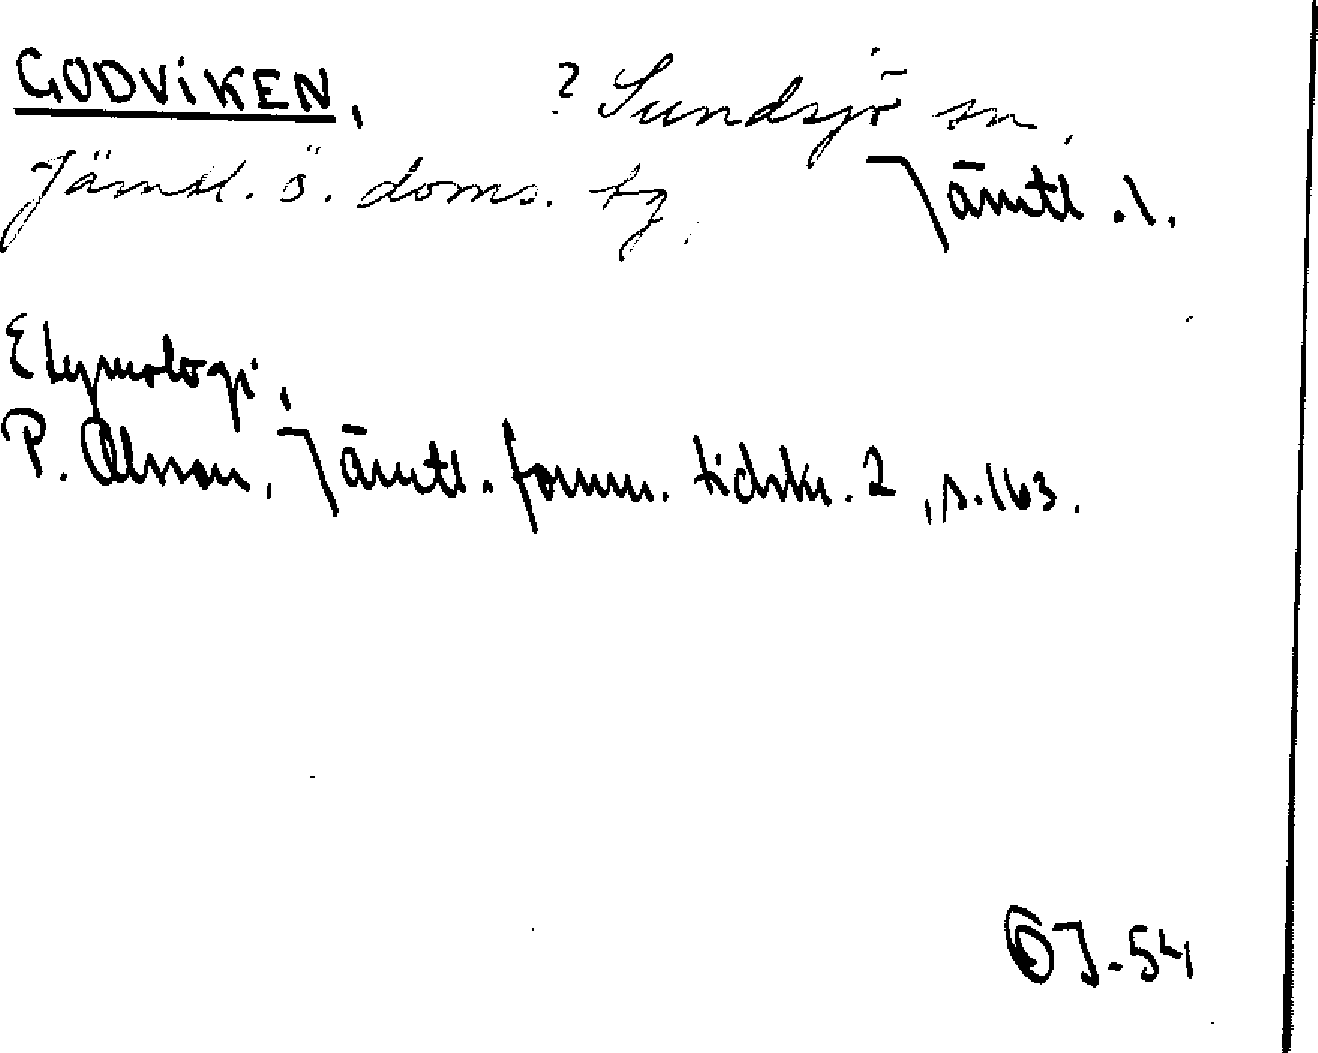 GODVIKEN, ? Sundsjö sn,
Jämtl. ö. doms. tg. Jämtl. l.
Etymologi.
P. Olsson, Jämtl. fornm. tidskr. 2, s. 163.
OJ-54